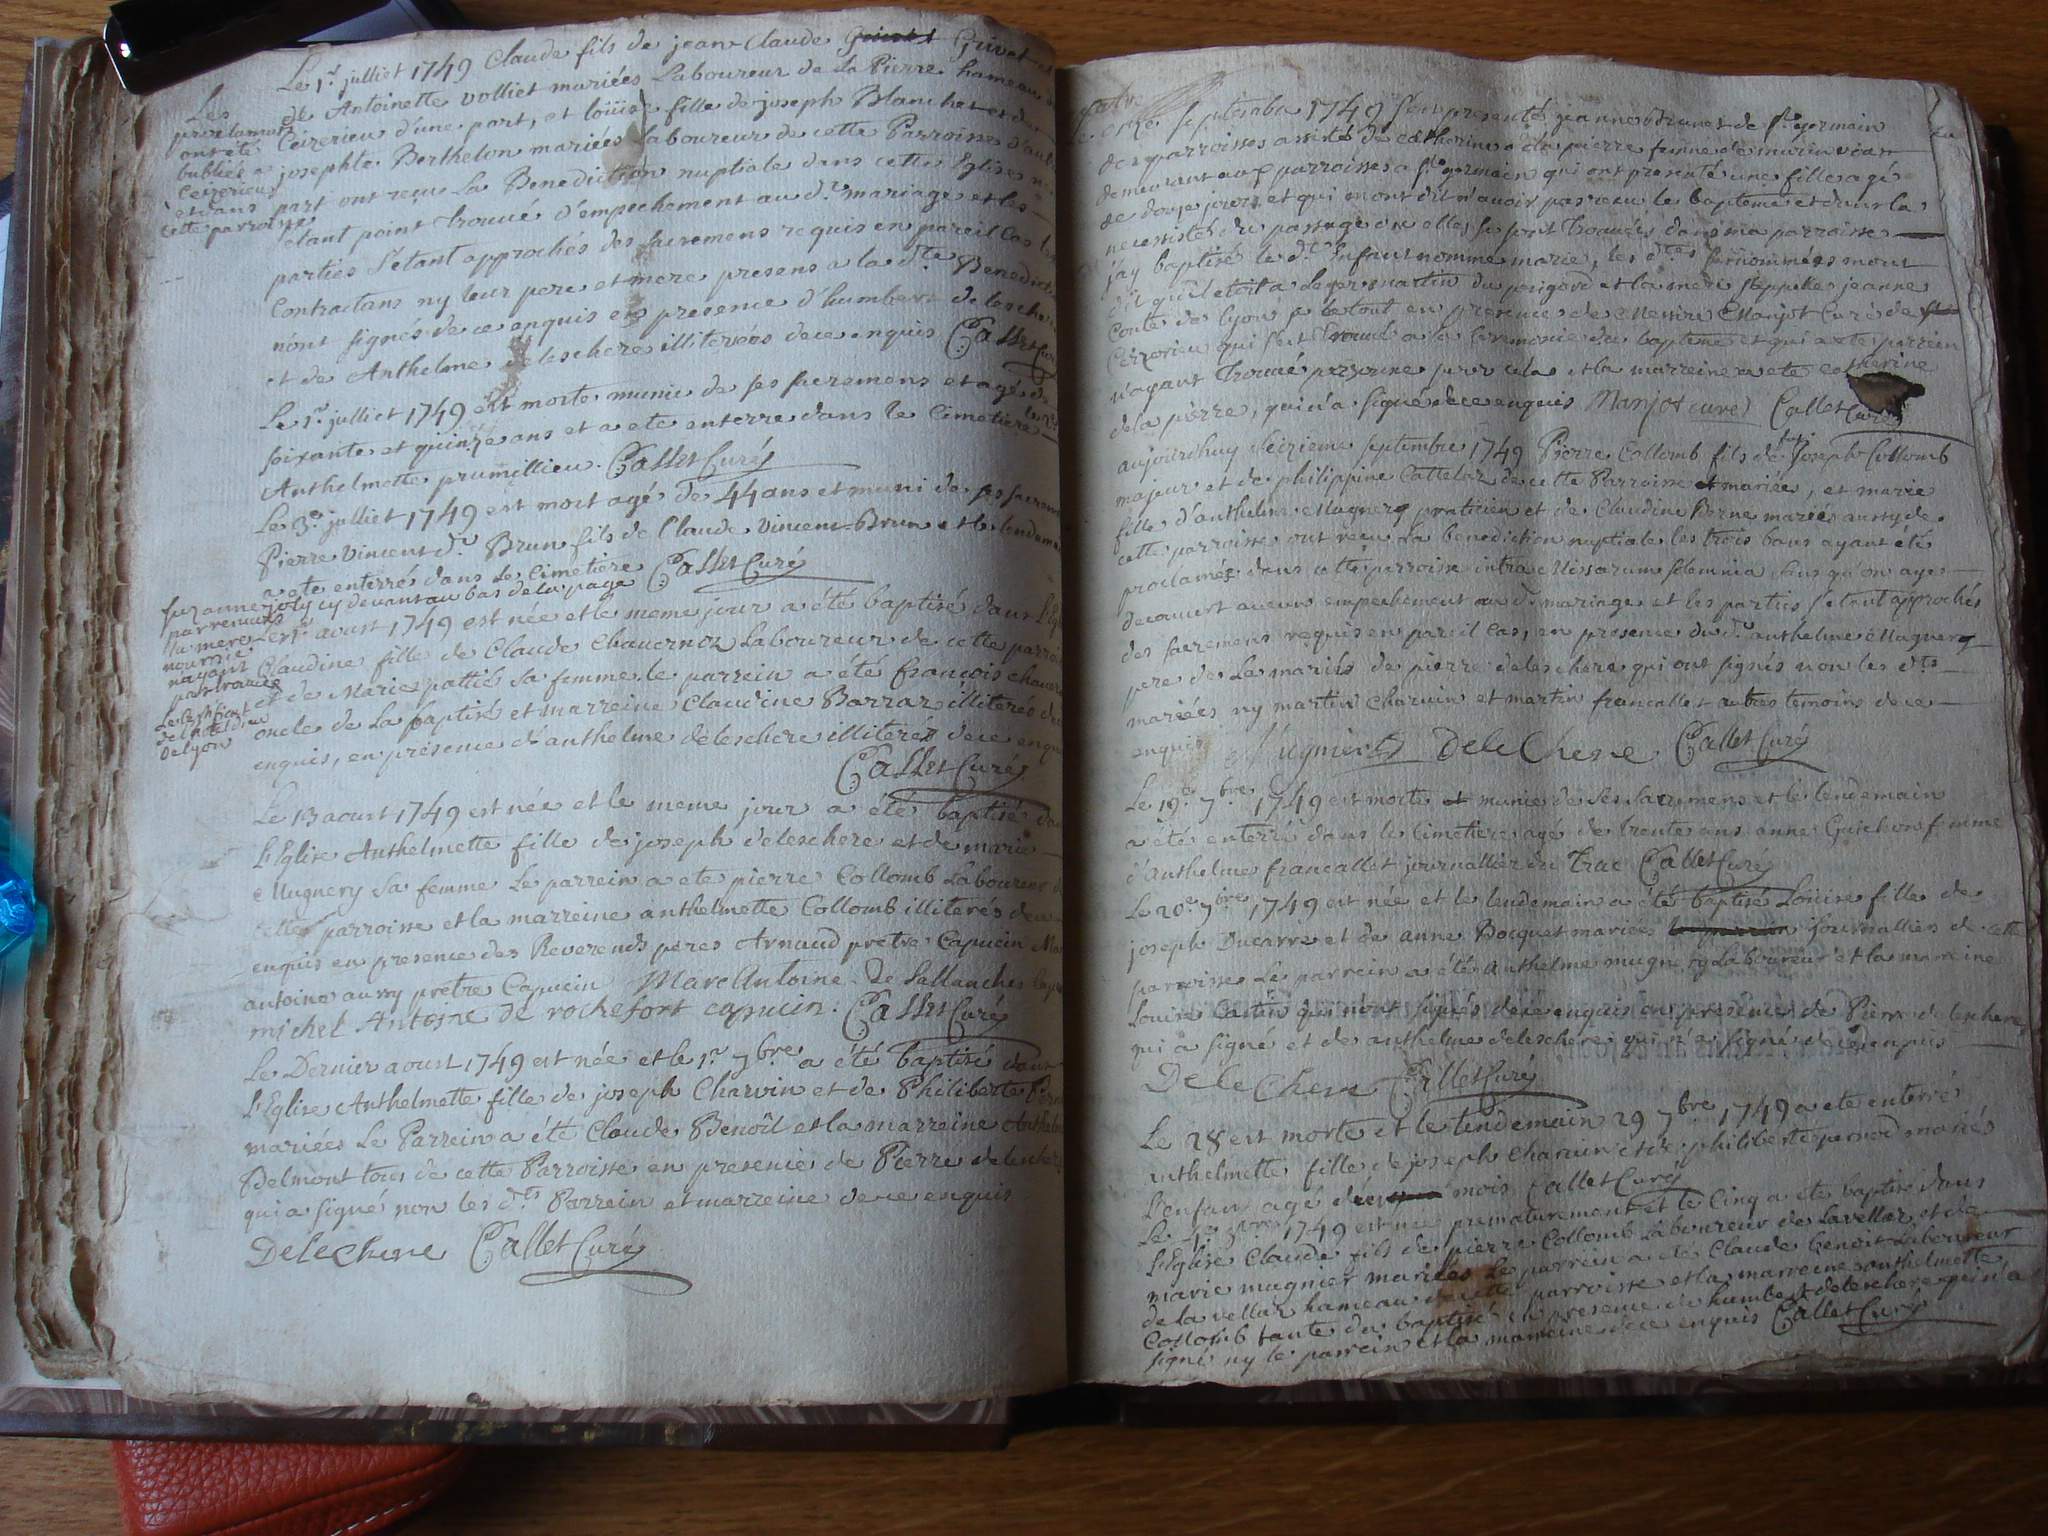 Le 1r julliet 1749 Claude fils de jean Claude Grivet
de Antoinette volliet mariées Laboureur de La Pierre hameau
Ceirerieu d'une part, et loüise fille de joseph Blanchet et de
josephte Berthelon mariés laboureur de cette Parroisse d'autre
part ont reçu La Benediction nuptiale dans cette Eglise
etant point trouvé d'empechement au dt mariage et les
parties s'etant approchés des sacremens requis en pareil Cas
Contractans ny leur pere et mere presens a la dte Benedict
n'ont signés de ce enquis en presence d'humbert delesche
et de Anthelme deleschere illiterées de ce enquis Callet Curé
Les
proclamat
ont été
publiée a
Ceirerieu
et dans
cette parroisse
Le 1r julliet 1749 est morte munie de ses sacremens et agé de
soixante et quinze ans et a ete enterre dans le Cimetiere
Anthelmette prumillieu. Callet Curé
Le 3e julliet 1749 est mort agé de 44 ans et muni de ses sacrem
Pierre vincent dt Brun fils de Claude vincent Brun et le lendema
a ete enterré dans le Cimetiere Callet Curé
suzanne joly cy devant au bas de la page
la mere
nourrie
n'ayant
pas
de l'hotel dieu
de lyon
aoust 1749 est née et le meme jour a été baptisé dans l'Egl
Claudine fille de Claude Chavernoz Laboureur de cette parroi
et de Marie pattié sa femme. le parrein a été françois chaver
oncle de La baptisé et marreine Claudine Barrar illiteres de
enquis, en presence d'anthelme deleschere illiterés de ce enqu
Callet Curé
Le 13 aoust 1749 est née et le meme jour a été baptisé dan
l'Eglise Anthelmette fille de joseph deleschere et de marie
Mugnery sa femme Le parrein a ete pierre Collomb Laboureur de
cette parroisse et la marreine anthelmette Collomb illiterés de ce
enquis en presence des Reverends peres Arnaud pretre Capucin Ma
antoine aussy pretre Capucin Marc Antoine De Sallanches Cap
michel Antoine de rochefort capucin. Callet Curé
Le Dernier aoust 1749 est née et le 1r 7bre a été baptisé dans
l'Eglise Anthelmette fille de joseph Charvin et de Philiberte Pern
mariées Le Parrein a été Claude Benoît et la marreine Anthelm
Delmont tous de cette Parroisse en presence de Pierre deleschere
qui a signé non les dts Parrein et marreine de ce enquis
Delechere Callet Curé
septembre 1749 s'est presenté jeanne Brunet de st germain
des parroisses assisté de Catherine de la pierre femme de
demeurant aux parroisses a st germain qui ont presenté une fille agé
de douze jours et qui m'ont dit n'avoir pas reçu le baptême et dans la
necessité du passage ou elles se sont trouvées dans ma parroisse
j'ay baptisé le dt Enfant nommé marie, les dtes surnommées m'ont
dit qu'il etoit a leger martin du perigord et la mere s'appelle jeanne
Conte de lyon, le tout en presence de Messire Manjot Curé de
Ceizerieu qui s'est trouvé a la ceremonie du bapteme et qui a eté parrein
n'ayant trouvé personne pour cela et la marreine a ete catherine
de la pierre, qui n'a signé de ce enquis Manjot curé Callet Curé
aujourdhuy seizieme septembre 1749 Pierre Collomb fils de feu Joseph Collomb
majeur et de philippine Cattelar de cette Parroisse mariée, et marie
fille d'anthelme Mugnery praticien et de Claudine Berne mariés aussy de
cette parroisse ont reçu la benediction nuptiale les trois bans ayant été
proclamée dans cette parroisse intra Missarum solemnia sans qu'on aye
decouvert aucun empechement au dt mariage et les parties s'etant approchés
des sacremens requis en pareil Cas, en presence du dt anthelme Mugnery
pere de La mariée de pierre deleschere qui ont signés non les dts
mariées ny martin Charvin et martin francallet autres temoins de ce
enquis Mugnier Delechere Callet Curé
Le 19e 7bre 1749 est morte munie de ses sacremens et le lendemain
a été enterré dans le Cimetiere agé de trente ans anne Guichon femme
d'Anthelme francallet journallier du trac Callet Curé
Le 20e 7bre 1749 est née et le lendemain a été baptisé Loüise fille de
joseph Ducarre et de anne Bocquet mariées journalliers de cette
parroisse Le parrein a été Anthelme mugnery Laboureur et la mareine
Louise Castin qui n'ont signés de ce enquis en presence de Pierre deleschere
qui a signé et de anthelme deleschere qui n'a signé de ce enquis
Delechere Callet Curé
Le 28 est morte et le lendemain 29 7bre 1749 a ete enterré
anthelmette fille de joseph Charvin et de philiberte pernod mariés
L'enfan agé d'un mois Callet Curé
Le 4e 1749 est né prematurement et le Cinq a ete baptisé dans
l'Eglise Claude fils de pierre Collomb Laboureur de Lavellaz et de
marie mugnier mariées Le parrein a ete Claude benoit Laboureur
de la vellaz hameau de cette parroisse et la marreine anthelmette
Collomb tante du baptisé en presence de humbert deleschere qui n'a
signé ny le parrein et la marreine de ce enquis Callet Curé